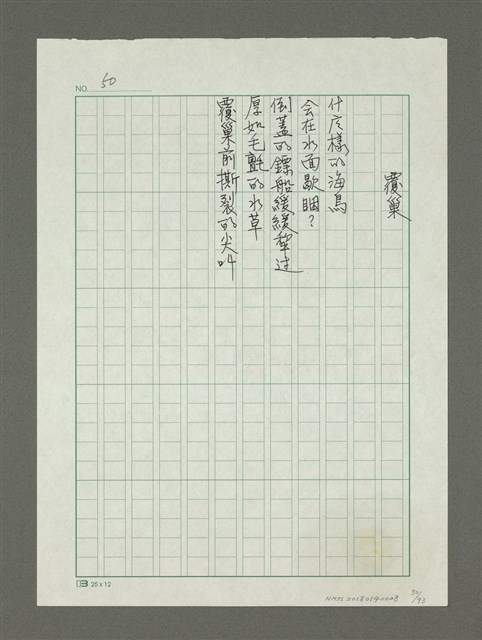 NO. 50
覆巢
什么樣的海鳥
会在水面歇睏？
倒蓋的鏢船緩緩犂过
厚如毛氈的水草
覆巢前撕裂的尖叫
25 x 12
NMTL20180140008
50/93